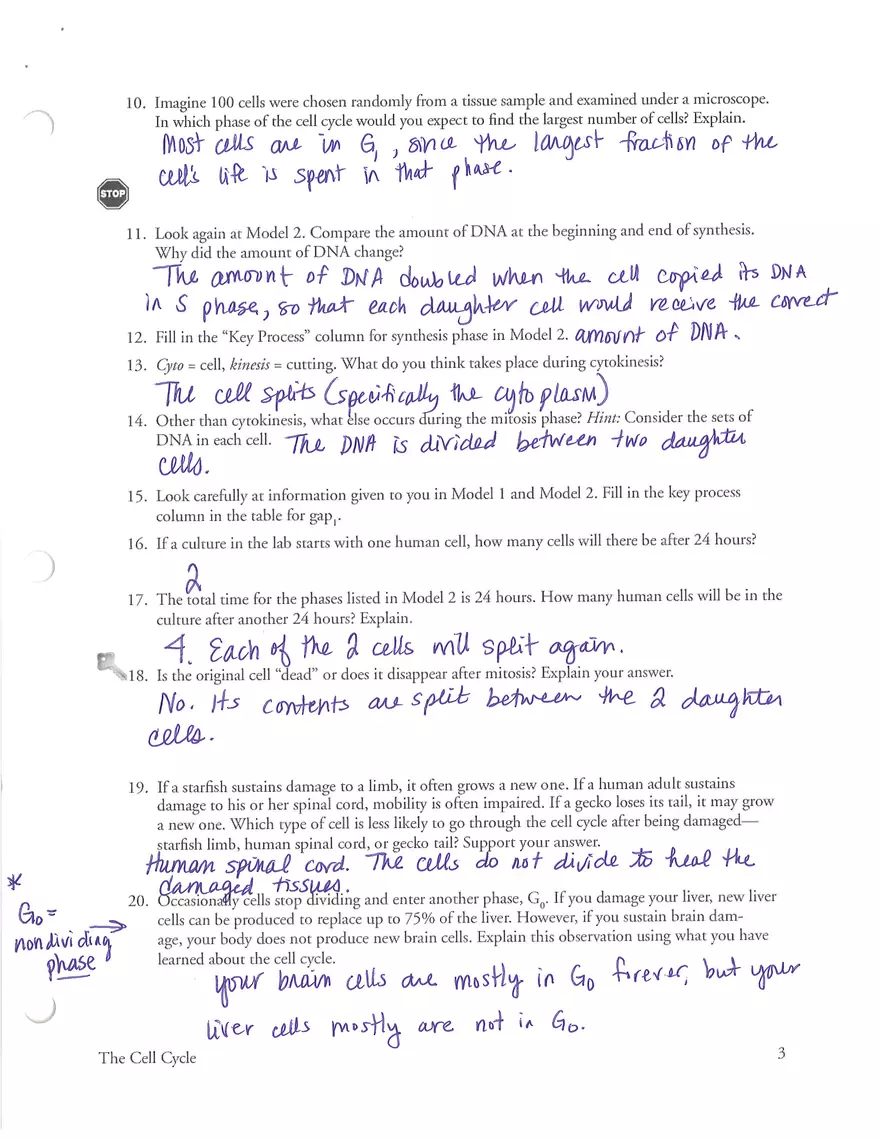 10. Imagine 100 cells were chosen randomly from a tissue sample and examined under a microscope.
In which phase of the cell cycle would you expect to find the largest number of cells? Explain.
Most cells are in G₁, since the largest fraction of the
cell's life is spent in that phase.
STOP
11. Look again at Model 2. Compare the amount of DNA at the beginning and end of synthesis.
Why did the amount of DNA change?
The amount of DNA doubled when the cell copied its DNA
in S phase, so that each daughter cell would receive the correct
amount of DNA.
12. Fill in the “Key Process” column for synthesis phase in Model 2.
13. Cyto = cell, kinesis = cutting. What do you think takes place during cytokinesis?
The cell splits (specifically the cytoplasm)
14. Other than cytokinesis, what else occurs during the mitosis phase? Hint: Consider the sets of
DNA in each cell. The DNA is divided between two daughter
cells.
15. Look carefully at information given to you in Model 1 and Model 2. Fill in the key process
column in the table for gap₁.
16. If a culture in the lab starts with one human cell, how many cells will there be after 24 hours?
2
17. The total time for the phases listed in Model 2 is 24 hours. How many human cells will be in the
culture after another 24 hours? Explain.
4. Each of the 2 cells will split again.
18. Is the original cell “dead” or does it disappear after mitosis? Explain your answer.
No. Its contents are split between the 2 daughter
cells.
19. If a starfish sustains damage to a limb, it often grows a new one. If a human adult sustains
damage to his or her spinal cord, mobility is often impaired. If a gecko loses its tail, it may grow
a new one. Which type of cell is less likely to go through the cell cycle after being damaged—
starfish limb, human spinal cord, or gecko tail? Support your answer.
Human spinal cord. The cells do not divide to heal the
damaged tissues.
20. Occasionally cells stop dividing and enter another phase, G₀. If you damage your liver, new liver
cells can be produced to replace up to 75% of the liver. However, if you sustain brain dam-
age, your body does not produce new brain cells. Explain this observation using what you have
learned about the cell cycle.
*
G₀ =
nondividing
phase
your brain cells are mostly in G₀ forever, but your
liver cells mostly are not in G₀.
The Cell Cycle
3